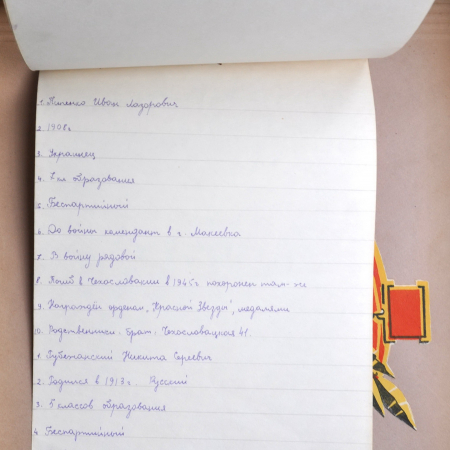 1. Пипенко Иван Лазорович
2. 1908г
3. Украинец
4. 8 кл. образования
5. Беспартийный
6. До войны комендант в г. Макеевка
7. В войну рядовой
8. Погиб в Чехословакии в 1945 г похоронен там-же
9. Награждён орденом „Красной Звезды", медалями
10. Родственники: брат: Чехословацкая 41.
1. Никита Сергеевич
2. Родился в 1913 г. Русский
3. 5 классов образования
4. Беспартийный